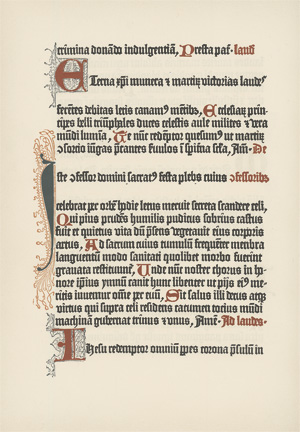 crimina donãdo indulgentiã, Presta pař. laud.
Eterna xp̃i munera & martiꝝ victorias laudeˢ
ferẽtes debitas letis canamꝰ mẽtibꝫ, Ecclesiaꝝ prin-
cipes belli triũphales duces celestis aule milites & vera
mũdi lumĩa, Te nũc redẽptor quesumꝰ ut martiꝝ
ꝯsortio iũgas p̃cantes ẜuulos ĩ sẽpiťna sc̃la, Amẽ. De
Iste ꝯfessor domini sacratꝰ festa plebs cuius ꝯfessoribꝫ
celebrat per orbẽ hodie letus meruit secreta scandere celi,
Qui pius prudẽs humilis pudicus sobrius castus
fuit & quietus vita dũ p̃sens vegetauit eius corporis
artus, Ad sacrum cuius tumulũ frequẽter mẽbra
languentiũ modo sanitati quolibet morbo fuerint
grauata restituunť, Unde nũc noster chorus in ho-
nore ip̃ius ymnũ canit hunc libenter ut pijs eiꝰ me-
ritis iuuemur om̃e per euũ, Sit salus illi decus atqꝫ
virtus qui supra celi residens cacumen tocius mũdi
machinã gubernat trinus & vnus, Amẽ. Ad laudes.
Ihesu redemptor omniũ p̃pes corona p̃sulũ in